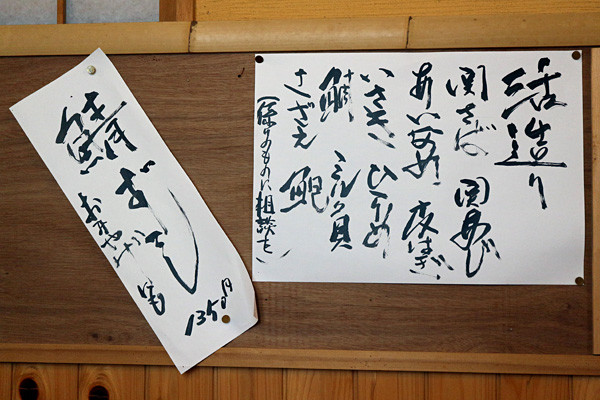 活造り
関さば 関あじ
あいなめ 皮はぎ
いさき ひらめ
鯛 ミル貝
さざえ 鮑
(係りのものに相談を)
鯖ずし
おみやげにも
1350円